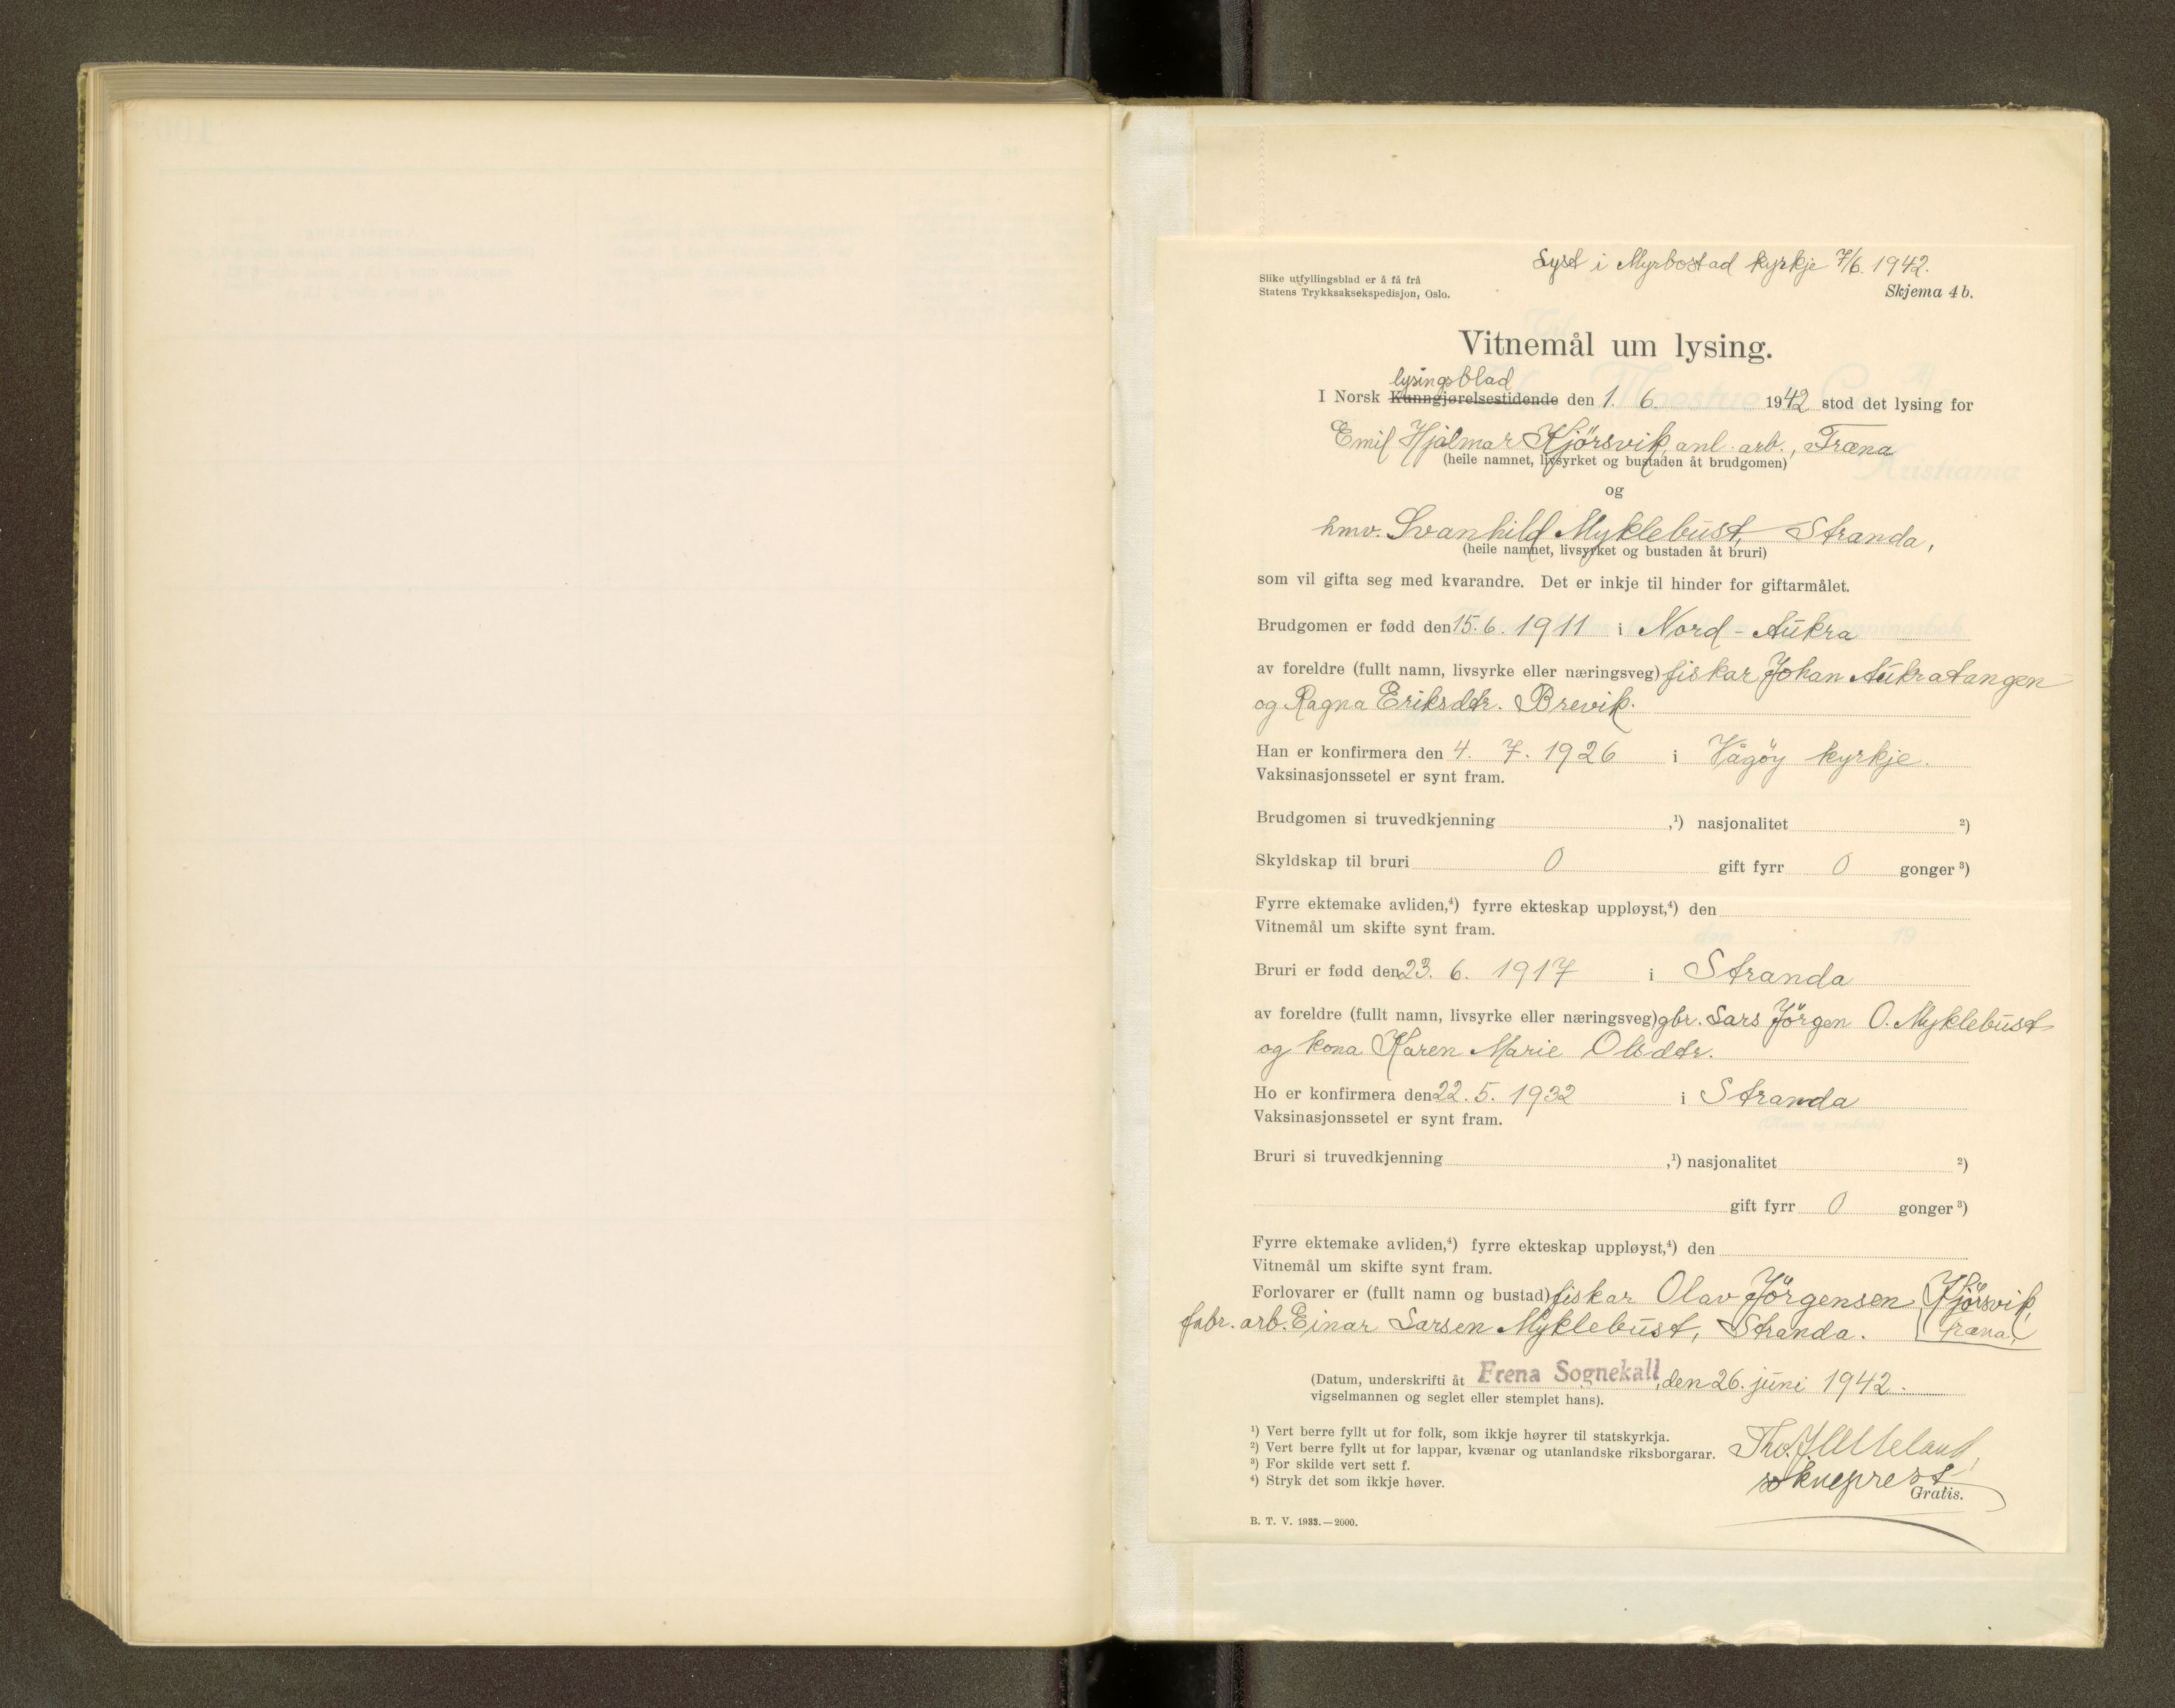 Lyst i Myrbostad kyrkje 7/6. 1942.
Slike utfyllingsblad er å få frå
Statens Trykksaksekspedisjon, Oslo.
Skjema 4 b.
Vitnemål um lysing.
lysingsblad
I Norsk Kunngjørelsestidende den 1. 6. 1942 stod det lysing for
Emil Hjalmar Kjörsvik, anl. arb., Fræna
(heile namnet, livsyrket og bustaden åt brudgomen)
og
hmv. Svanhild Myklebust, Stranda,
(heile namnet, livsyrket og bustaden åt bruri)
som vil gifta seg med kvarandre. Det er inkje til hinder for giftarmålet.
Brudgomen er fødd den 15. 6. 1911 i Nord-Aukra
av foreldre (fullt namn, livsyrke eller næringsveg) fiskar Johan Aukratangen
og Ragna Eriksdtr. Brevik.
Han er konfirmera den 4. 7. 1926 i Vågöy kyrkje.
Vaksinasjonssetel er synt fram.
Brudgomen si truvedkjenning ,¹) nasjonalitet ²)
Skyldskap til bruri 0 gift fyrr 0 gonger ³)
Fyrre ektemake avliden,⁴) fyrre ekteskap uppløyst,⁴) den
Vitnemål um skifte synt fram.
Bruri er fødd den 23. 6. 1917 i Stranda
av foreldre (fullt namn, livsyrke eller næringsveg) gbr. Lars Jörgen O. Myklebust
og kona Karen Marie Olsdtr.
Ho er konfirmera den 22. 5. 1932 i Stranda
Vaksinasjonssetel er synt fram.
Bruri si truvedkjenning ,¹) nasjonalitet ²)
gift fyrr 0 gonger ³)
Fyrre ektemake avliden,⁴) fyrre ekteskap uppløyst,⁴) den
Vitnemål um skifte synt fram.
Forlovarer er (fullt namn og bustad) fiskar Olav Jörgensen Kjörsvik,
Fræna,
fabr. arb. Einar Larsen Myklebust, Stranda.
(Datum, underskrifti åt Frena Sognekall, den 26. juni 1942.
vigselmannen og seglet eller stemplet hans).
¹) Vert berre fyllt ut for folk, som ikkje høyrer til statskyrkja.
²) Vert berre fyllt ut for lappar, kvænar og utanlandske riksborgarar.
³) For skilde vert sett f.
⁴) Stryk det som ikkje høver.
sokneprest
Gratis.
B. T. V. 1933.—2000.